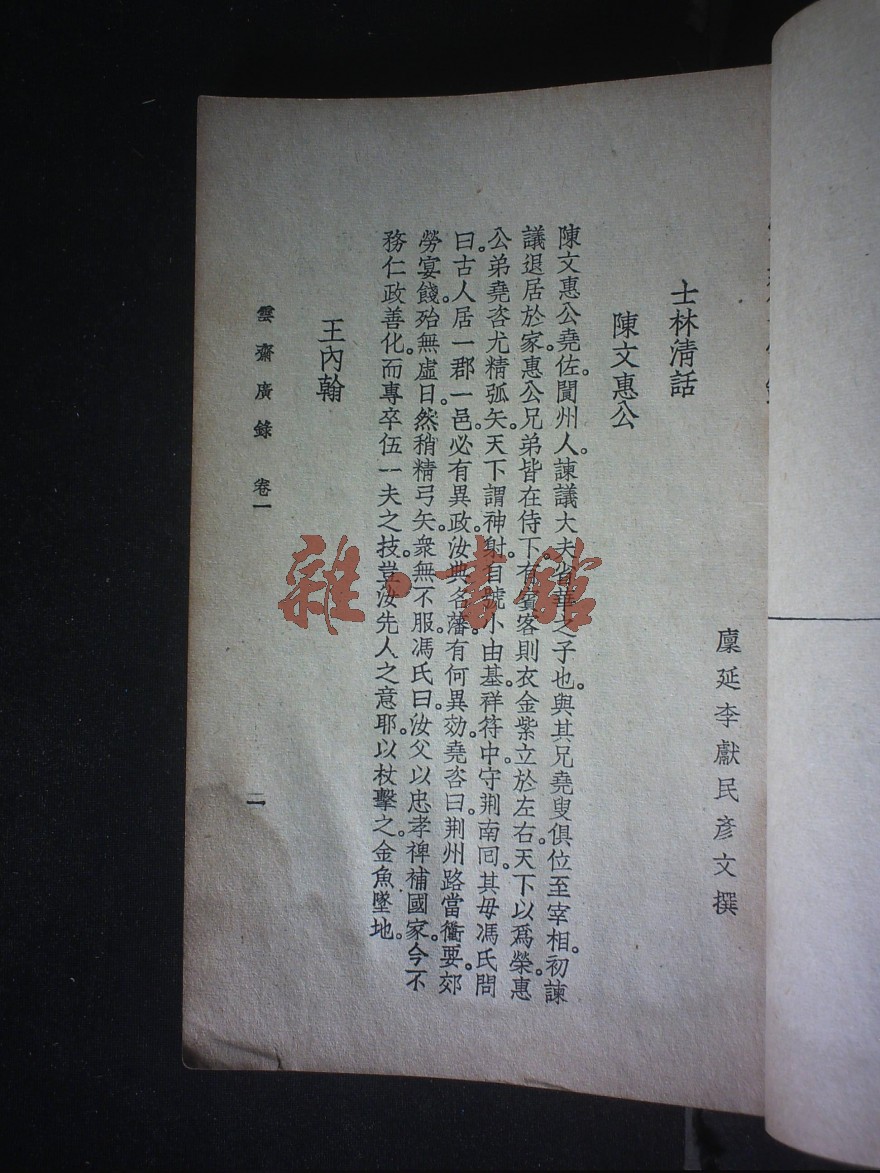 廩延李獻民彥文撰
士林清話
陳文惠公
陳文惠公堯佐。閬州人。諫議大夫省華之子也。與其兄堯叟俱位至宰相。初諫
議退居於家。惠公兄弟皆在侍下。有賓客則衣金紫立於左右。天下以爲榮。惠
公弟堯咨尤精弧矢。天下謂神射。自號小由基。祥符中。守荆南囘。其母馮氏問
曰。古人居一郡一邑。必有異政。汝典名藩。有何異効。堯咨曰。荆州路當衝要。郊
勞宴餞。殆無虛日。然稍精弓矢。衆無不服。馮氏曰。汝父以忠孝裨補國家。今不
務仁政善化。而專卒伍一夫之技。豈汝先人之意耶。以杖擊之。金魚墜地。
王內翰
雲齋廣錄 卷一
二
雜·書館